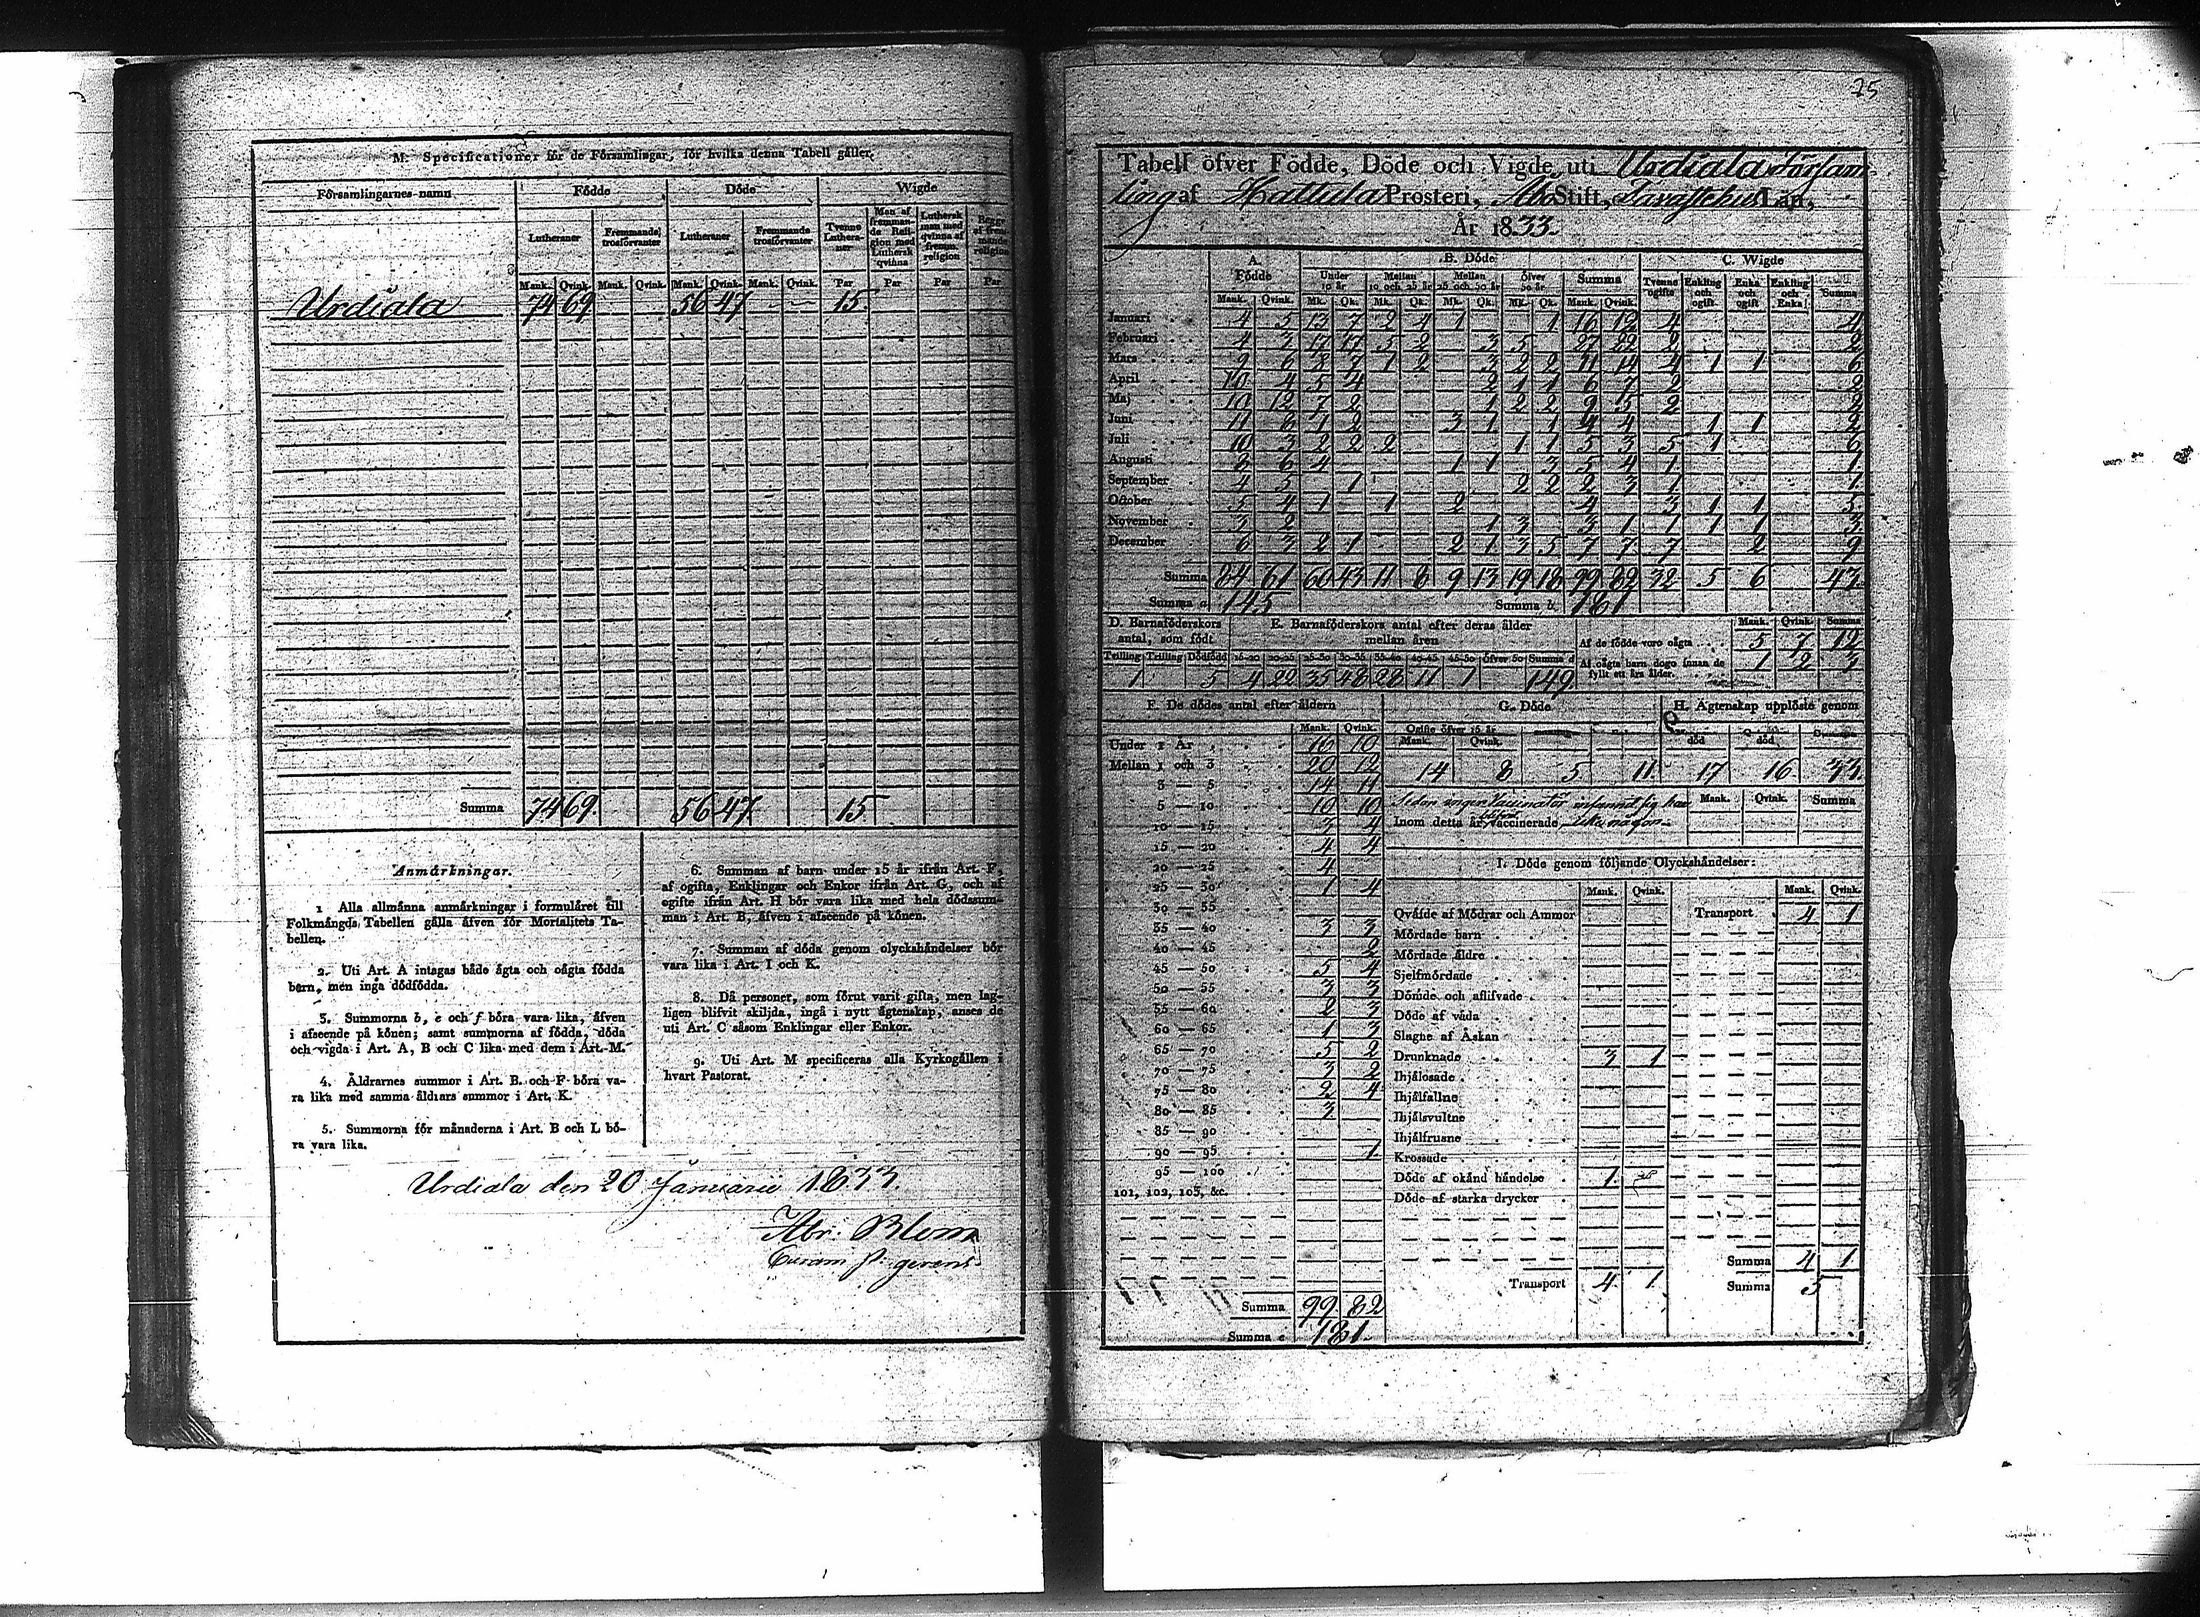 M. Specificationer för de Församlingar, för hvilka denna Tabell gäller.
Församlingarnes namn Födde Döde Wigde
Lutheraner Fremmande trosförvanter Lutheraner Fremmande trosförvanter Tvenne Lutheraner Man af fremmande Religion med Luthersk qvinna Luthersk man med qvinna af fremm. religion Begge af fremmande religion
Mank. Qvink. Mank. Qvink. Mank. Qvink. Mank. Qvink. Par Par Par Par
Urdiala 74 69 56 47 15
Summa 74 69 56 47 15
Anmärkningar.
1 Alla allmänna anmärkningar i formuläret till
Folkmängds Tabellen gälla äfven för Mortalitets Ta-
bellen.
2. Uti Art. A intagas både ägta och oägta födda
barn, men inga dödfödda.
3. Summorna b, e och f böra vara lika, äfven
i afseende på könen; samt summorna af födda, döda
och vigda i Art. A, B och C lika med dem i Art. M.
4. Åldrarnes summor i Art. B. och F böra va-
ra lika med samma åldrars summor i Art. K.
5. Summorna för månaderna i Art. B och L bö-
ra vara lika.
6. Summan af barn under 15 år ifrån Art. F,
af ogifta, Enklingar och Enkor ifrån Art. G, och af
egifte ifrån Art. H bör vara lika med hela dödssum-
man i Art. B, äfven i afseende på könen.
7. Summan af döda genom olyckshändelser bör
vara lika i Art. I och K.
8. Då personer, som förut varit gifta, men lag-
ligen blifvit skiljda, ingå i nytt ägtenskap, anses de
uti Art. C såsom Enklingar eller Enkor.
9. Uti Art. M specificeras alla Kyrkogällen i
hvart Pastorat.
Urdiala den 20 Januarii 1833.
Abr. Blom
Curam p. gerens
75
Tabell öfver Födde, Döde och Vigde uti Urdiala Försam-
ling af Hattula Prosteri, Åbo Stift, Tavastehus Län,
År 1833.
A. Födde B. Döde C. Wigde
Under 10 år Mellan 10 och 25 år Mellan 25 och 50 år öfver 50 år Summa Tvenne ogifte Enkling och ogift Enka och ogift Enkling och Enka Summa
Mank. Qvink. Mk. Qk. Mk. Qk. Mk. Qk. Mk. Qk. Mank. Qvink.
Januari 4 5 13 7 2 4 1 1 16 12 4 4
Februari 4 7 17 17 5 2 3 5 27 22 2 2
Mars 9 6 8 7 1 2 3 2 2 11 14 4 1 1 6
April 10 4 5 4 2 1 1 6 7 2 2
Maj 10 12 7 2 1 2 2 9 5 2 2
Juni 11 8 1 2 3 1 1 4 4 1 1 2
Juli 10 3 2 2 2 1 1 5 3 5 1 6
Augusti 8 6 4 1 1 3 5 4 1 1
September 4 5 1 2 2 2 3 1 1
October 5 4 1 1 2 4 3 1 1 5
November 3 2 1 3 3 1 1 1 1 3
December 6 3 2 1 2 1 3 5 7 7 7 2 9
Summa 84 61 60 43 11 8 9 13 19 18 99 82 32 5 6 43
Summa a 145 Summa b. 181
D. Barnaföderskors antal, som födt E. Barnaföderskors antal efter deras ålder mellan åren Mank. Qvink. Summa
Af de födde voro oägta 5 7 12
Tvilling Trilling Dödfödd 15-20 20-25 25-30 30-35 35-40 40-45 45-50 öfver 50 Summa d Af oägta barn dogo innan de fyllt ett års ålder. 1 2 3
1 5 4 22 35 48 28 11 1 149
F. De dödes antal efter åldern G. Döde H. Ägtenskap upplöste genom
Mank. Qvink. Ogifte öfver 15 år Mank. Qvink. död död
Under 1 År 16 10
Mellan 1 och 3 20 12 14 8 5 11 17 16 33
3 — 5 14 11
5 — 10 10 10 Sedan ingen Vaccinatör infunnit sig har Mank. Qvink. Summa
10 — 15 3 4 Inom detta år vaccinerade icke någon
15 — 20 4 4
20 — 25 4
25 — 30 1 4
30 — 35
35 — 40 3 3
40 — 45 2
45 — 50 5 4
50 — 55 3 3
55 — 60 2 3
60 — 65 1 3
65 — 70 5 2
70 — 75 3 2
75 — 80 2 4
80 — 85 3
85 — 90
90 — 95 1
95 — 100
101, 102, 103, &c.
Summa 99 82
Summa e 181
I. Döde genom följande Olyckshändelser:
Mank. Qvink. Mank. Qvink.
Qväfde af Mödrar och Ammor Transport 4 1
Mördade barn
Mördade äldre
Sjelfmördade
Dömde och aflifvade
Döde af våda
Slagne af Åskan
Drunknade 3 1
Ihjälosade
Ihjälfallne
Ihjälsvultne
Ihjälfrusne
Krossade
Döde af okänd händelse 1
Döde af starka drycker
Summa 4 1
Transport 4 1 Summa 5